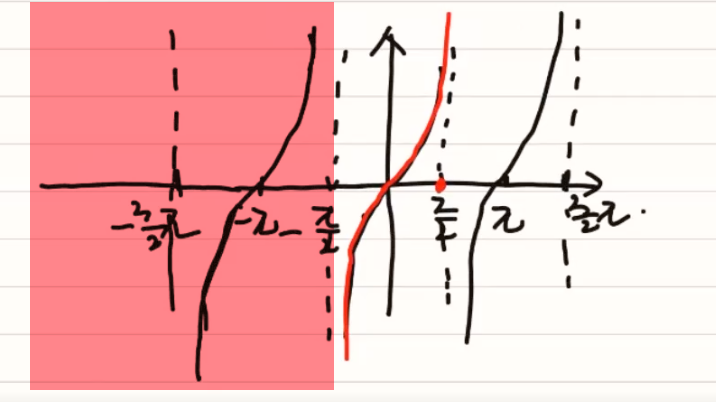 -3/2π -π -π/2 π/2 π 3/2π.